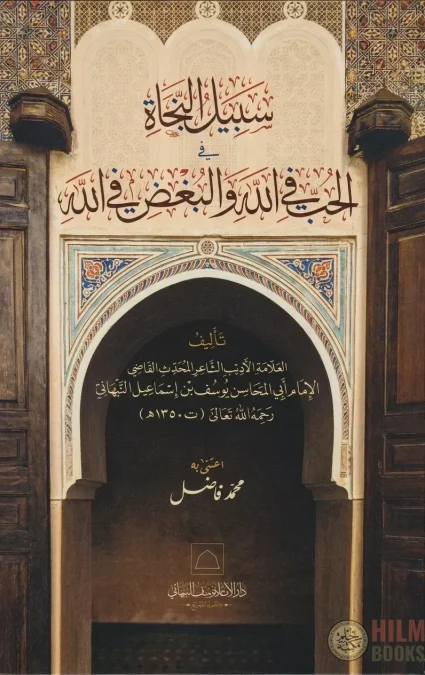 سَبِيلُ النَّجَاةِ
في
الحُبِّ فِي اللهِ وَالبُغْضِ فِي اللهِ
تَأْلِيفُ
العَلَّامَة الأَدِيب الشَّاعِر المُحَدِّث القَاضِي
الإِمَام أَبِي المَحَاسِن يُوسُف بْن إِسْمَاعِيل النَّبْهَانِيّ
رَحِمَهُ اللهُ تَعَالَى (ت ١٣٥٠ه)
اعتنى به
محمد فاضل
دار الإمام يوسف النبهاني
HILM
BOOKS